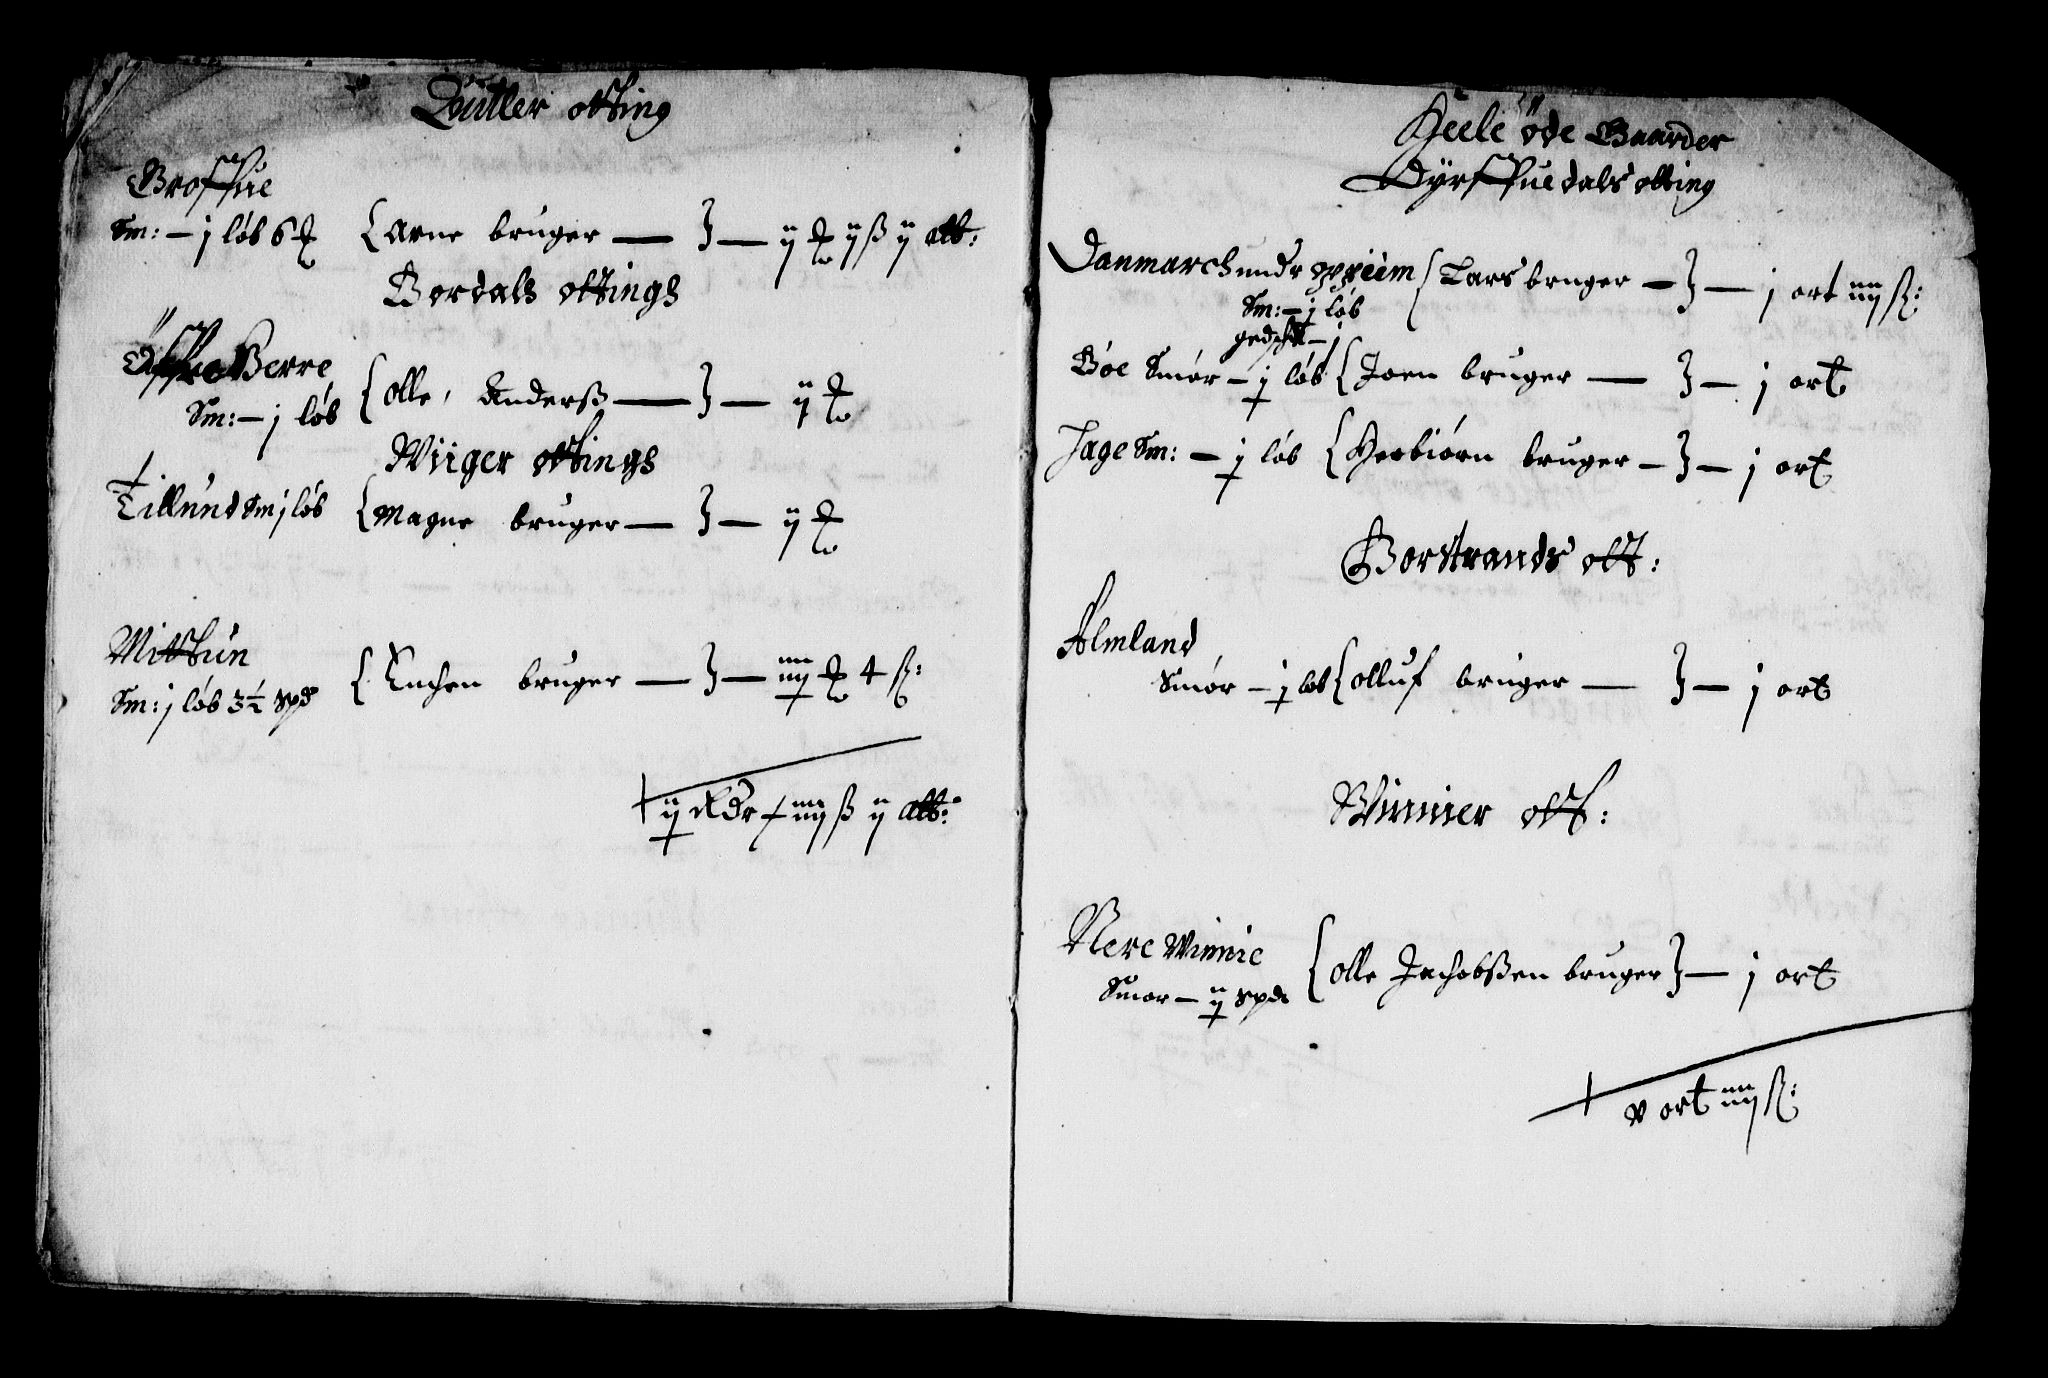 Quitler otting
Groffue
Sm: – j løb 6 ℔ { Arne bruger — } — ij ℔ ij ß ij alb:
Bordals ottings
Berre
Sm: – j løb { olle, Anderß — } — ij ℔
Wiiger ottings
Tillund Sm j løb { Magne bruger — } — ij ℔
Mittun
Sm: j løb 3½ spd { Knchen bruger — } — iiij ℔ 4 ß:
ij Rdr iiij ß ij alb:
Heele öde Gaarder
Dyrffuedals otting
Danmarch undr oppeim { Lars bruger – } — j ort iiij ß:
Sm: – j løb
gedschd – j
Bøe Smør – j løb { Joen bruger — } – j ort
Jage Sm: – j løb { Herbiørn bruger – } – j ort
Borstrands ott:
Almland
Smør – j løb { olluf bruger — } – j ort
Winnier ott:
Nere Winnie
Smør – ij spd { olle Jachobßen bruger } – j ort
v ort iiij ß: